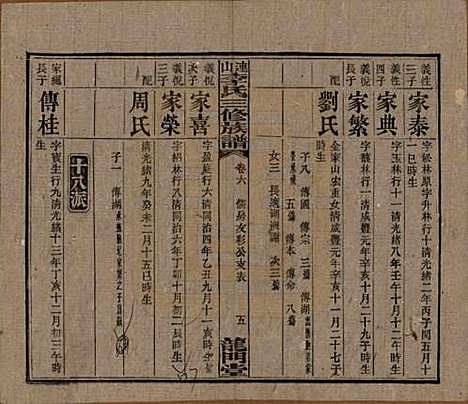 義性長子
家泰
字松林原字升林行十清光緒二年丙子閏五月十一巳時生
義性子
家典
字玉林行十一清光緒八年壬午十二月十時生
義悅長子
家繁
字馥林行一清咸豐元年辛亥十二月二十九午時生
配
劉氏
金家山宏遠女清咸豐元年辛亥十一月二十七子時生
子八 傳國 傳宗 三殤
五殤 傳本 傳命 八殤
女三 長適湖洲 次三殤
連山李氏三修族譜
卷六 儒房友彭公支表
五
龍門堂
義悅次子
家喜
字盈林行四清同治四年乙丑九月十時生
義悅三子
家榮
字紹林行七清同治六年丁卯十二月初二辰時生
配
周氏
清光緒九年癸未二月十五巳時生
子一 傳湖
十八派
家繩長子
傳桂
字寶生行九清光緒十三年丁亥十二月初三午時生